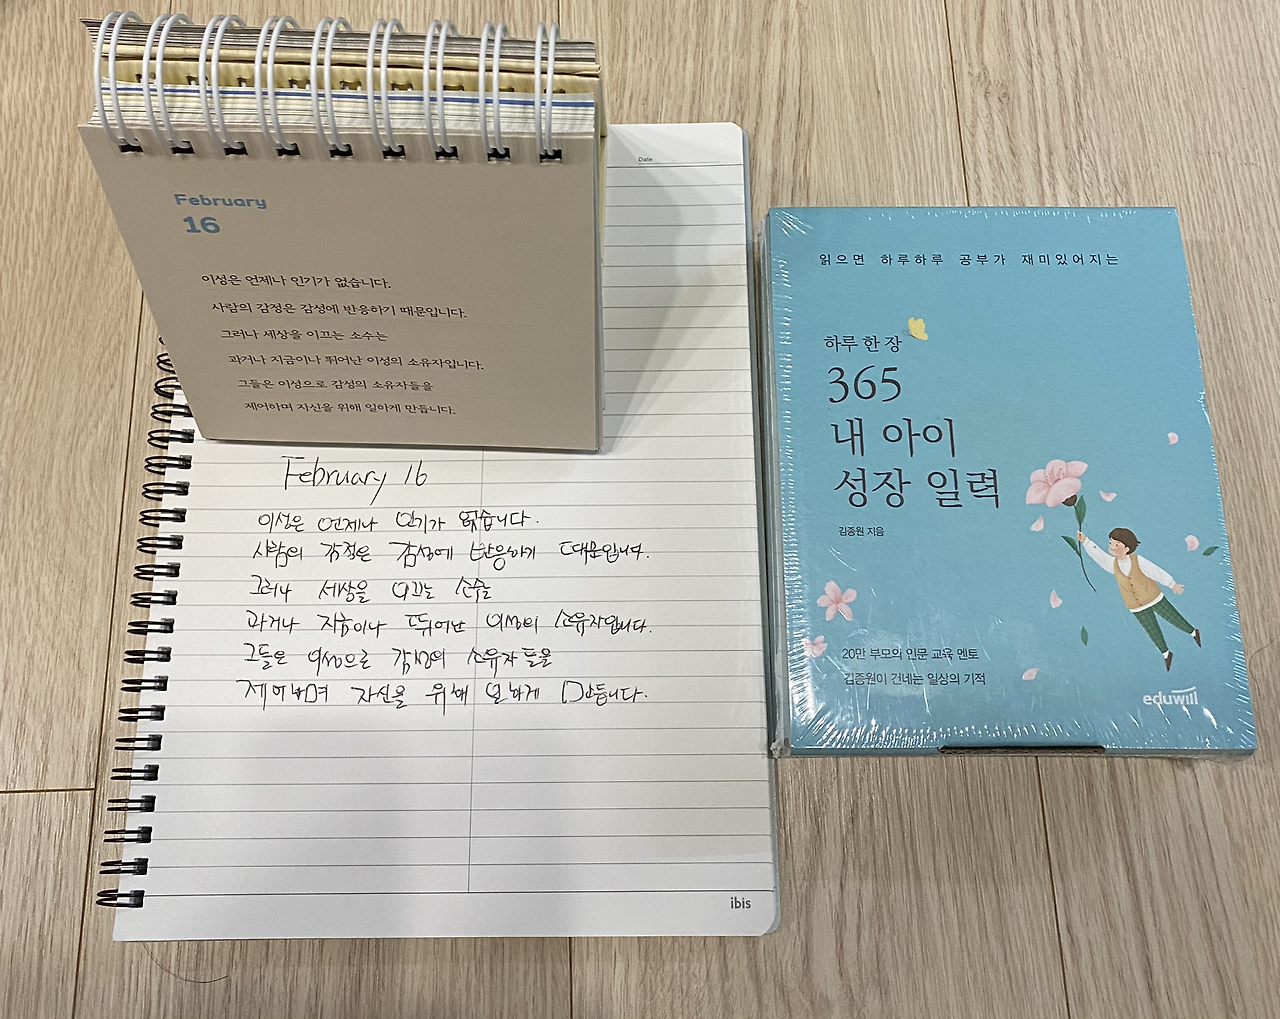 February
16
이성은 언제나 인기가 없습니다.
사람의 감정은 감성에 반응하기 때문입니다.
그러나 세상을 이끄는 소수는
과거나 지금이나 뛰어난 이성의 소유자입니다.
그들은 이성으로 감성의 소유자들을
제어하며 자신을 위해 일하게 만듭니다.
Date
February 16
이성은 언제나 인기가 없습니다.
사람의 감정은 감성에 반응하기 때문입니다.
그러나 세상을 이끄는 소수는
과거나 지금이나 뛰어난 이성의 소유자입니다.
그들은 이성으로 감성의 소유자들을
제어하며 자신을 위해 일하게 만듭니다.
ibis
읽으면 하루하루 공부가 재미있어지는
하루 한 장
365
내 아이
성장 일력
김종원 지음
20만 부모의 인문 교육 멘토
김종원이 건네는 일상의 기적
eduwill